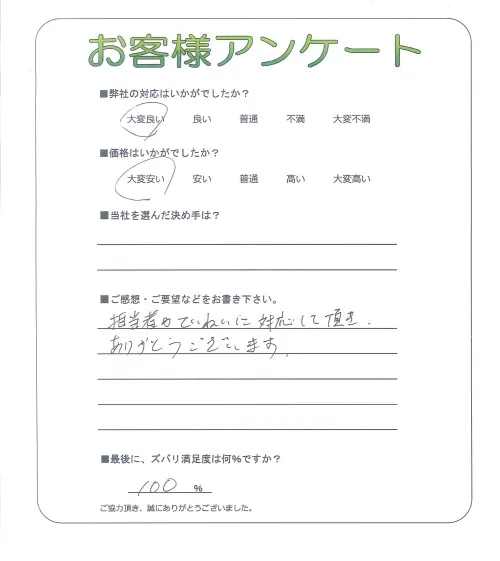 お客様アンケート
■弊社の対応はいかがでしたか？
大変良い 良い 普通 不満 大変不満
■価格はいかがでしたか？
大変安い 安い 普通 高い 大変高い
■当社を選んだ決め手は？
■ご感想・ご要望などをお書き下さい。
担当者がていねいに対応して頂き、
ありがとうございます。
■最後に、ズバリ満足度は何%ですか？
100 %
ご協力頂き、誠にありがとうございました。